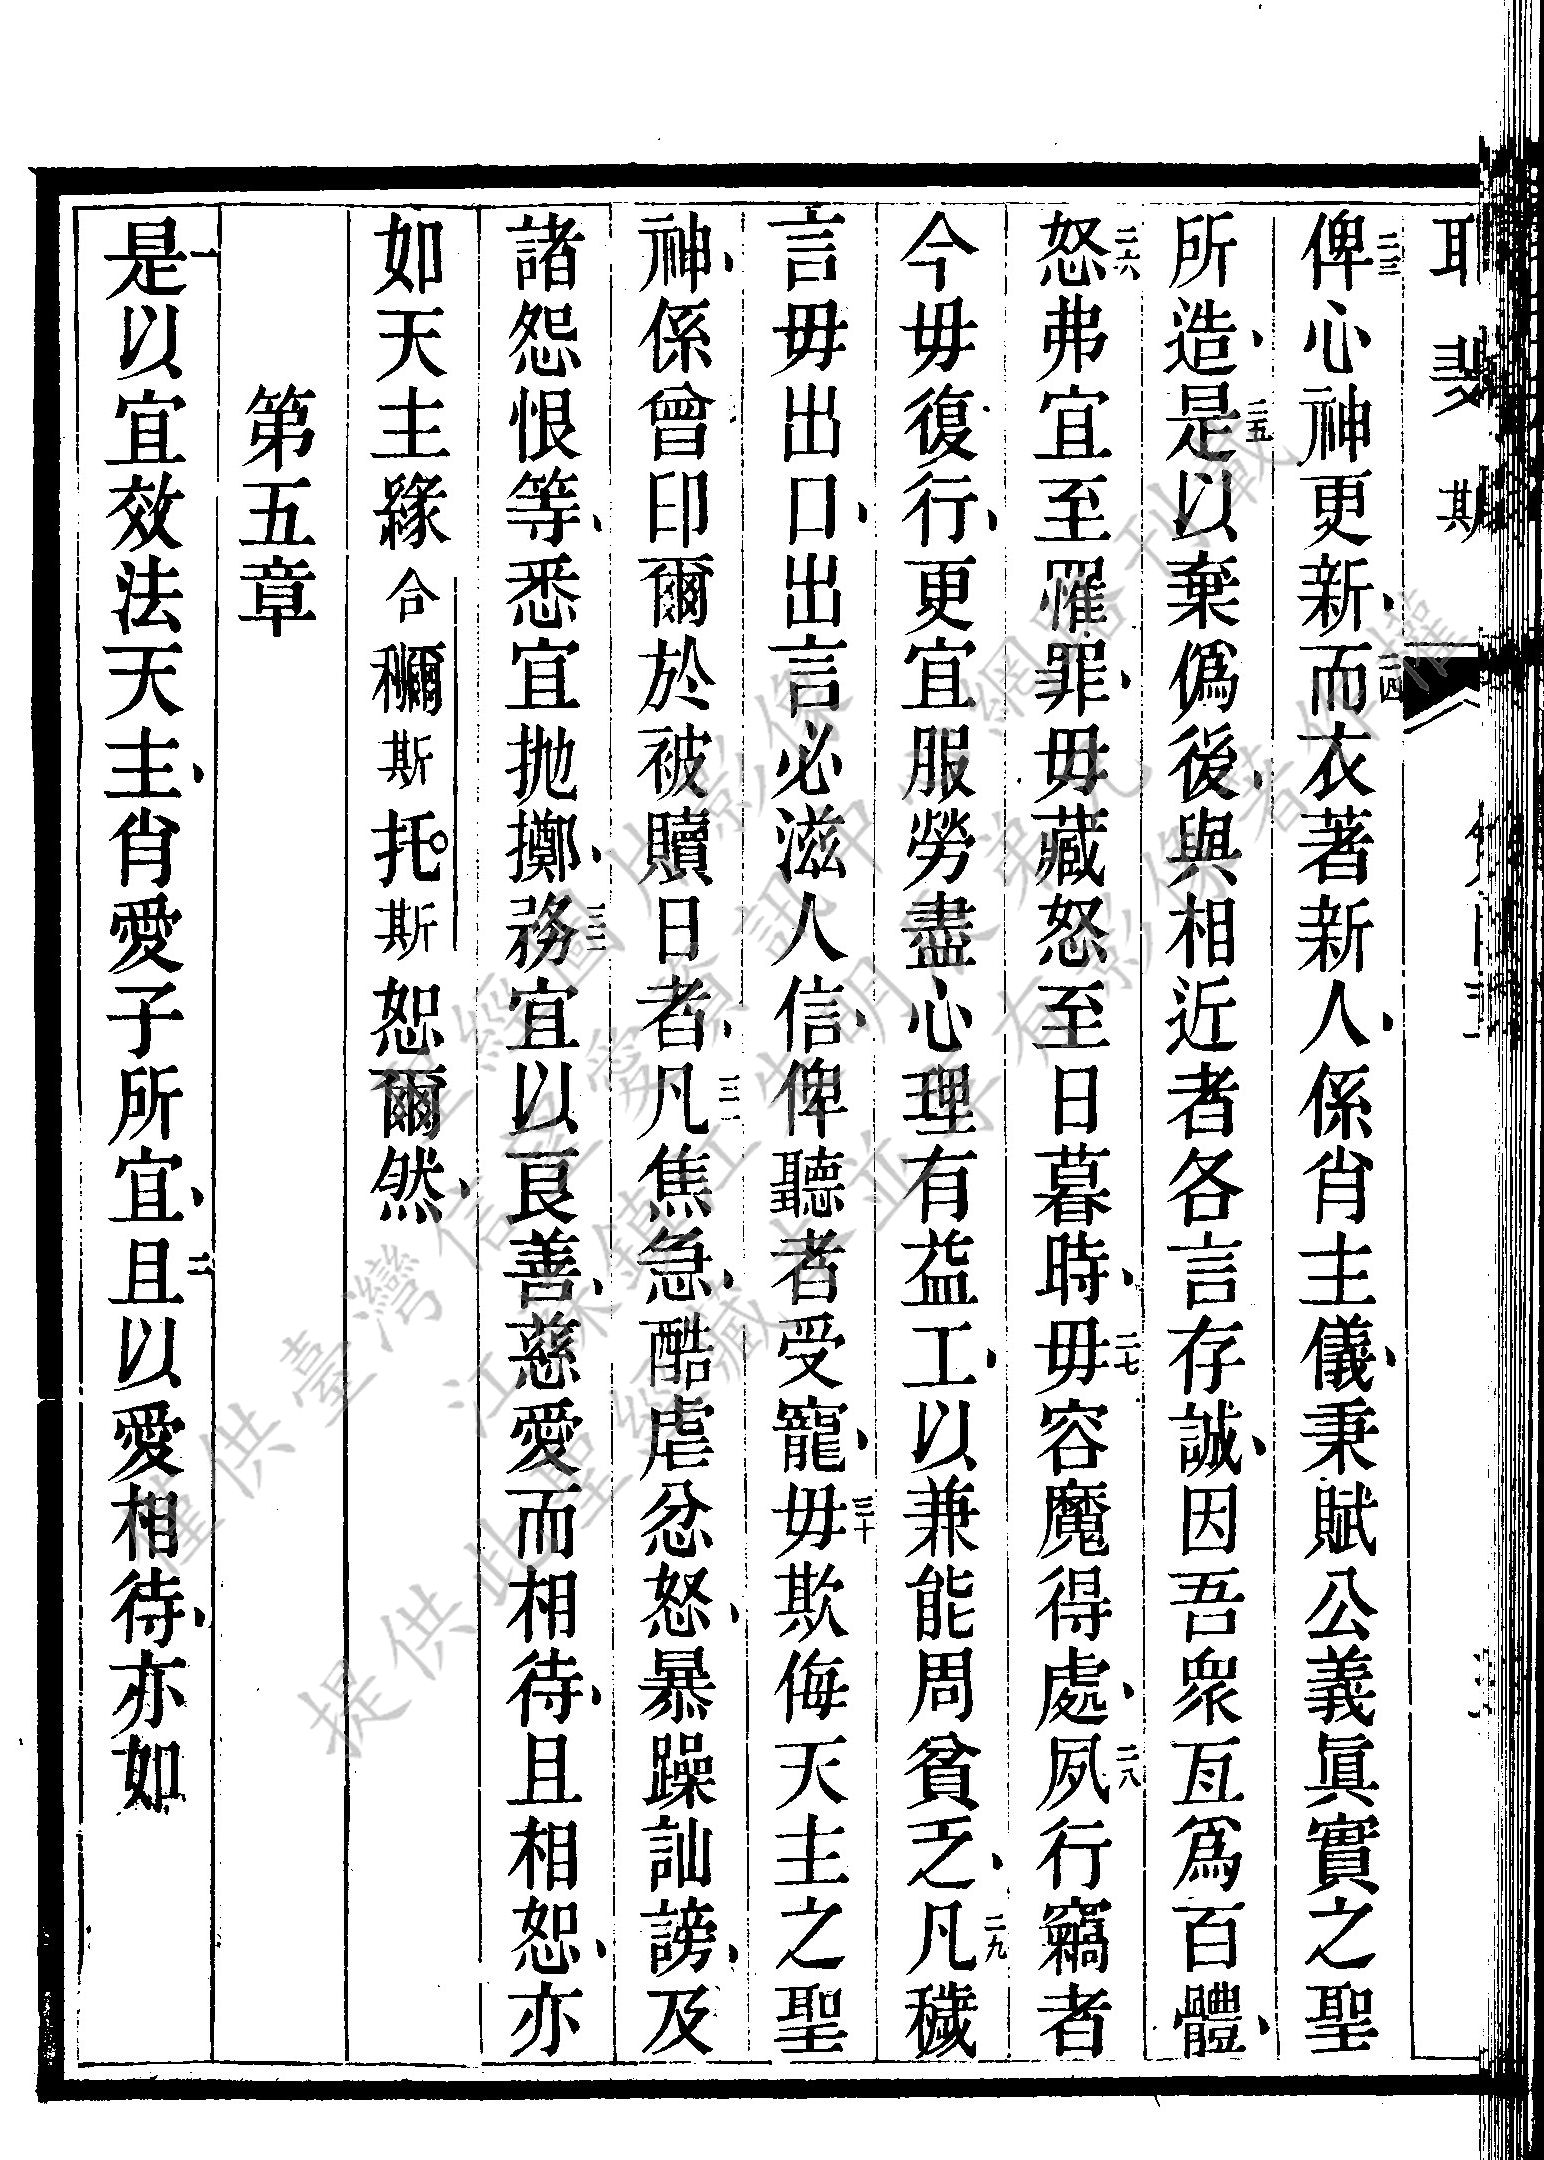 耶斐斯
二三俾心神更新、二四而衣著新人、係肖主儀、秉賦公義眞實之聖
所造、二五是以棄僞後、與相近者各言存誠、因吾衆亙爲百體、
二六怒弗宜至罹罪、毋藏怒至日暮時、二七毋容魔得處、二八夙行竊者
今毋復行、更宜服勞盡心理有益工、以兼能周貧乏、二九凡穢
言毋出口、出言必滋人信、俾聽者受寵、三十毋欺侮天主之聖
神、係曾印爾於被贖日者、三一凡焦急、酷虐忿怒、暴躁訕謗、及
諸怨恨等、悉宜拋擲、三二務宜以良善、慈愛而相待、且相恕、亦
如天主緣合穪斯托斯恕爾然、
第五章
一是以宜效法天主、肖愛子所宜、二且以愛相待、亦如
僅供臺灣信望愛資訊中心網路刊載
提供此聖經藏本並享有影像著作權